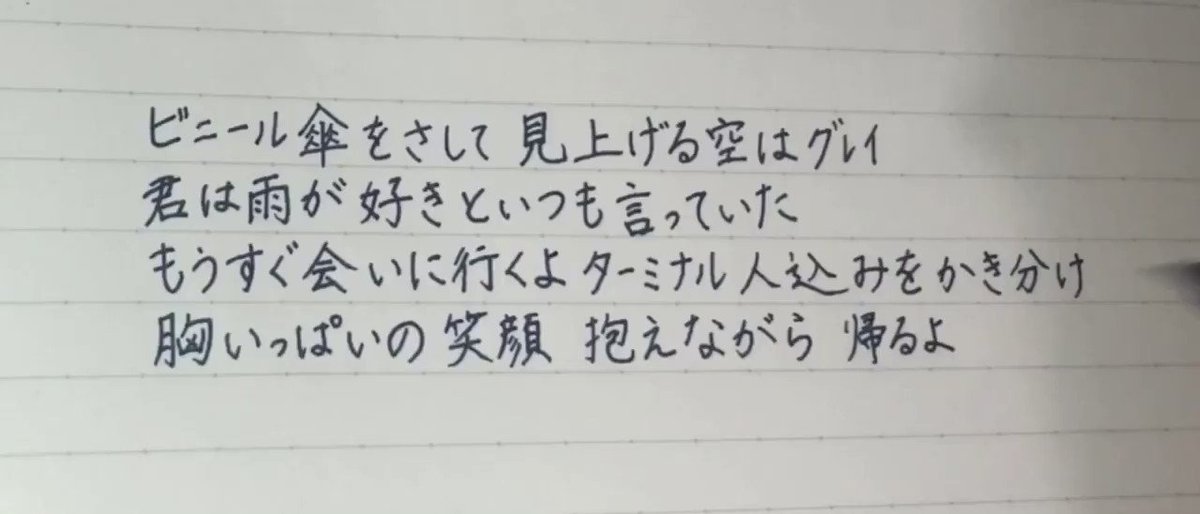 ビニール傘をさして 見上げる空はグレイ
君は雨が好きといつも言っていた
もうすぐ会いに行くよ ターミナル人込みをかき分け
胸いっぱいの笑顔 抱えながら 帰るよ